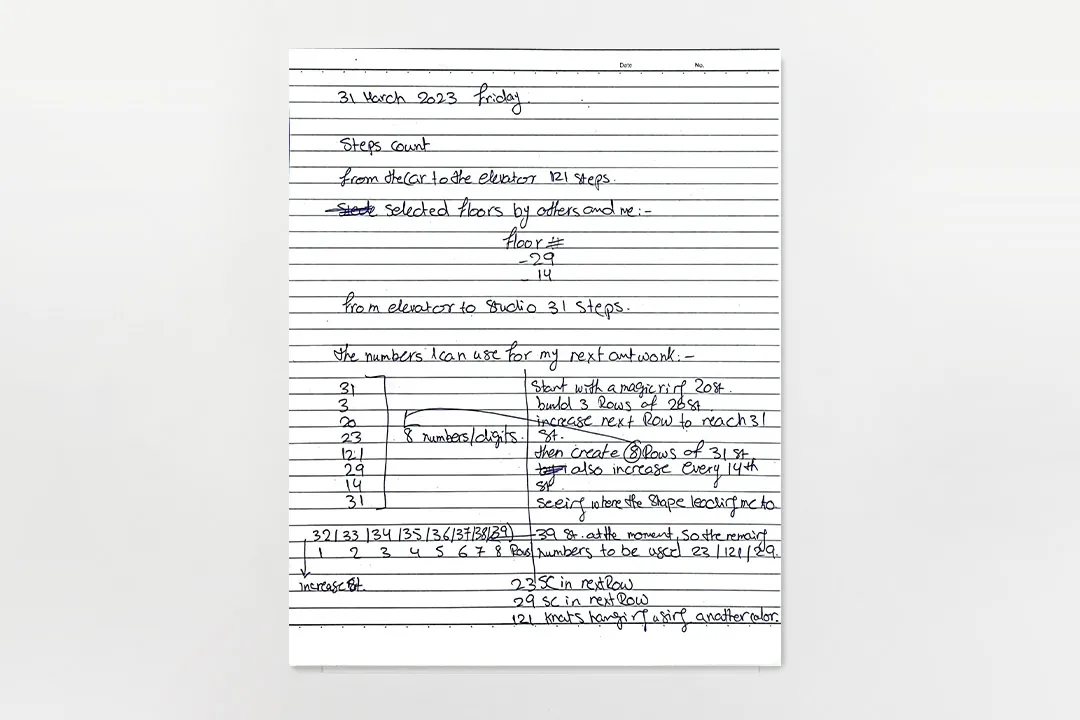 Date No.
31 March 2023 Friday.
Steps count
From the Car to the elevator 121 steps.
selected floors by others and me:-
floor #
-29
- 14
From elevator to Studio 31 Steps.
The numbers I can use for my next artwork:-
31
3
20
23
121
29
14
31
8 numbers/digits.
Start with a magic ring 20 st.
build 3 Rows of 20 st.
increase next Row to reach 31
st.
then create 8 Rows of 31 st
also increase every 14th
st
seeing where the shape leading me to
32/33/34/35/36/37/38/39)
1 2 3 4 5 6 7 8 Rows
increase st.
39 st. at the moment, so the remaing
numbers to be used 23/121/29.
23 SC in next Row
29 SC in next Row
121 knots hanging using another color.